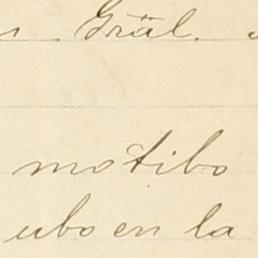 Gräl.
motibo
ubo en la